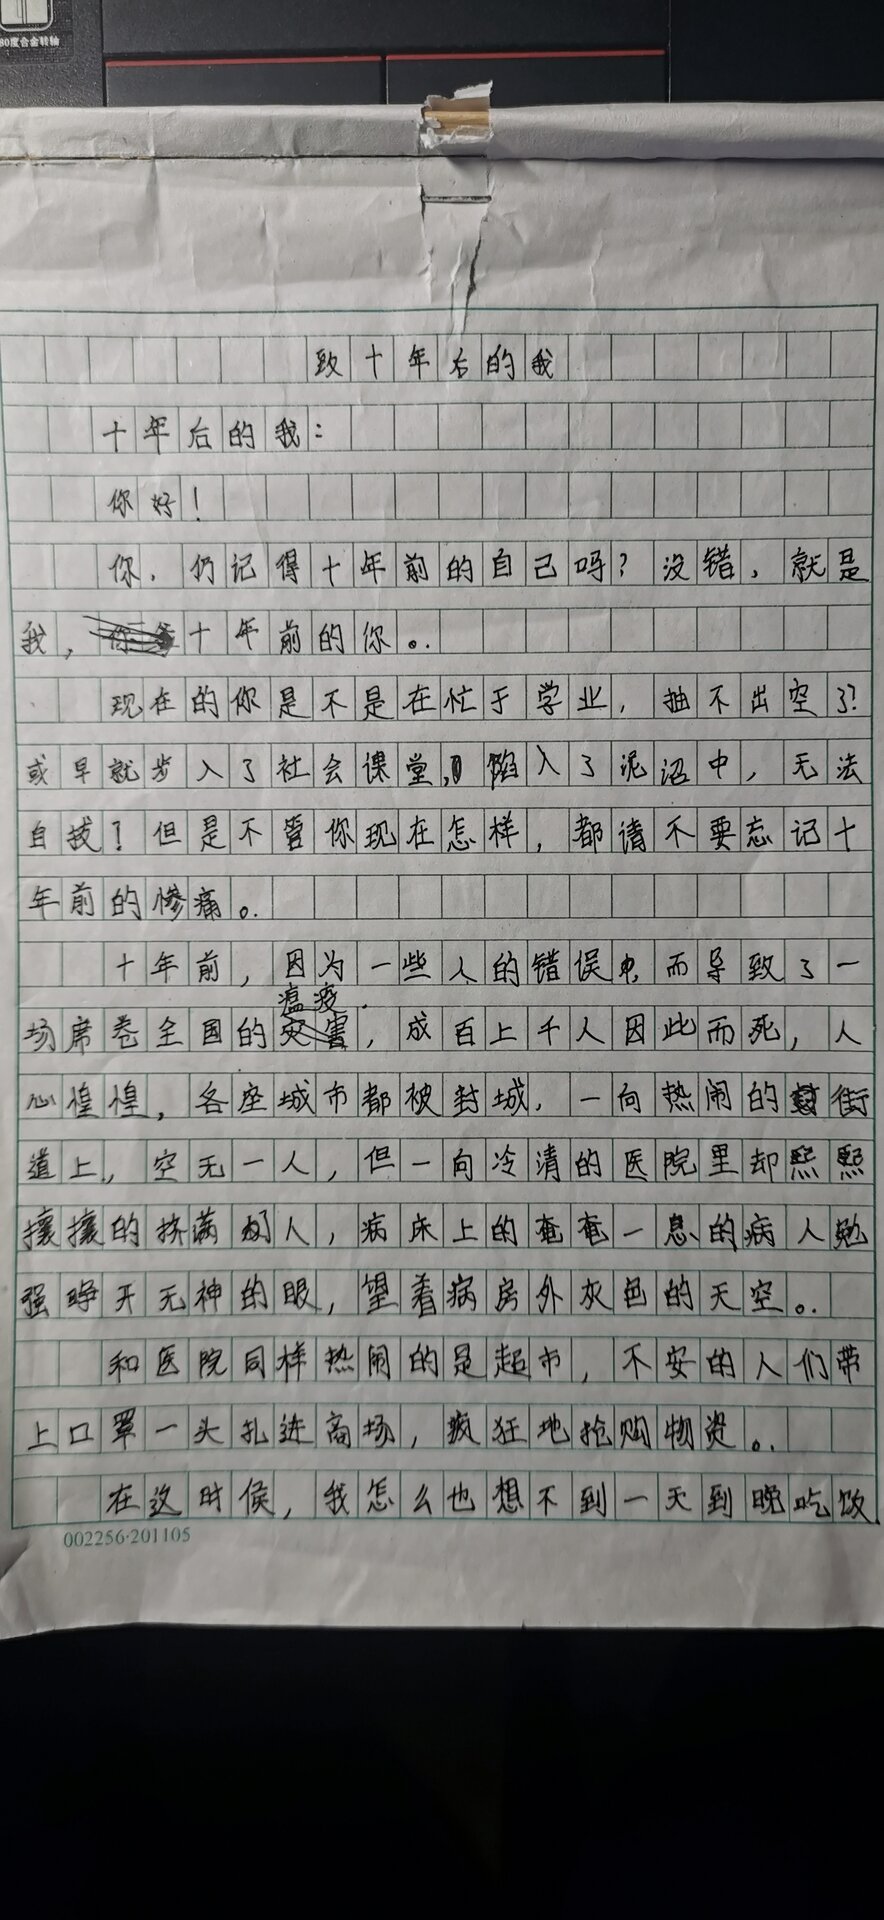 80度合金转轴
致十年后的我
十年后的我：
你好！
你，仍记得十年前的自己吗？没错，就是
我，十年前的你。
现在的你是不是在忙于学业，抽不出空了？
或早就步入了社会课堂，陷入了泥沼中，无法
自拔？但是不管你现在怎样，都请不要忘记十
年前的惨痛。
十年前，因为一些人的错误，而导致了一
场席卷全国的瘟疫，成百上千人因此而死，人
心惶惶，各座城市都被封城，一向热闹的街
道上，空无一人，但一向冷清的医院里却熙熙
攘攘的挤满了人，病床上的奄奄一息的病人勉
强睁开无神的眼，望着病房外灰色的天空。
和医院同样热闹的是超市，不安的人们带
上口罩一头扎进商场，疯狂地抢购物资。
在这时候，我怎么也想不到一天到晚吃饭
002256·201105